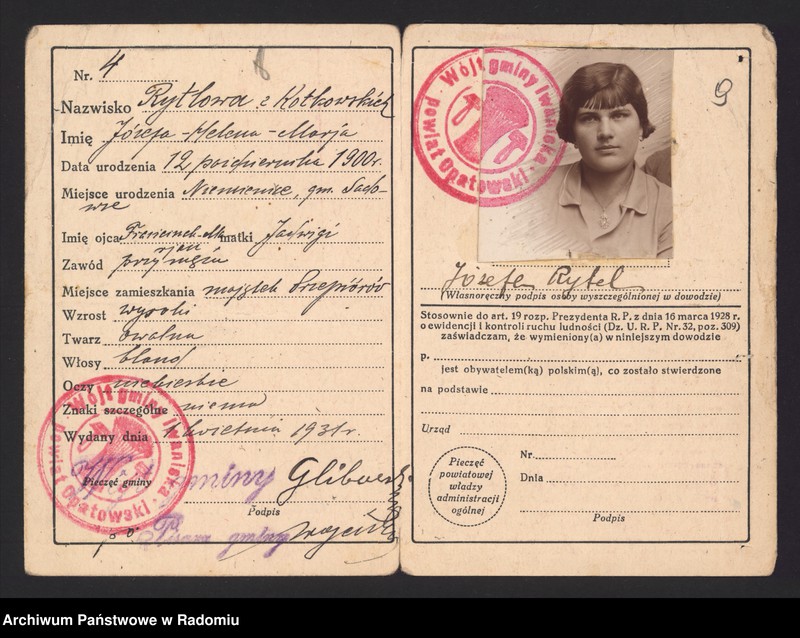 Nr. 4
8
Nazwisko Rytlowa z Kotkowskich
Imię Józefa-Helena-Marja
Data urodzenia 12 października 1900r.
Miejsce urodzenia Niemienice, gm. Sado-
wie
Imię ojca Franciszek-Ma matki Jadwigi
rjan
Zawód przy mężu
Miejsce zamieszkania majątek Przepiórów
Wzrost wysoki
Twarz owalna
Włosy blond
Oczy niebieskie
Znaki szczególne niema
Wydany dnia 1 kwietnia 1931r.
Wójt gminy Iwaniska
powiat Opatowski
Pieczęć gminy
Wójt gminy
Podpis
Pisarz gminy
9
Wójt gminy Iwaniska
powiat Opatowski
Józefa Rytel
(Własnoręczny podpis osoby wyszczególnionej w dowodzie)
Stosownie do art. 19 rozp. Prezydenta R. P. z dnia 16 marca 1928 r.
o ewidencji i kontroli ruchu ludności (Dz. U. R. P. Nr. 32, poz. 309)
zaświadczam, że wymieniony(a) w niniejszym dowodzie
p.
jest obywatelem(ką) polskim(ą), co zostało stwierdzone
na podstawie
Urząd
Pieczęć
powiatowej
władzy
administracji
ogólnej
Nr.
Dnia
Podpis
Archiwum Państwowe w Radomiu